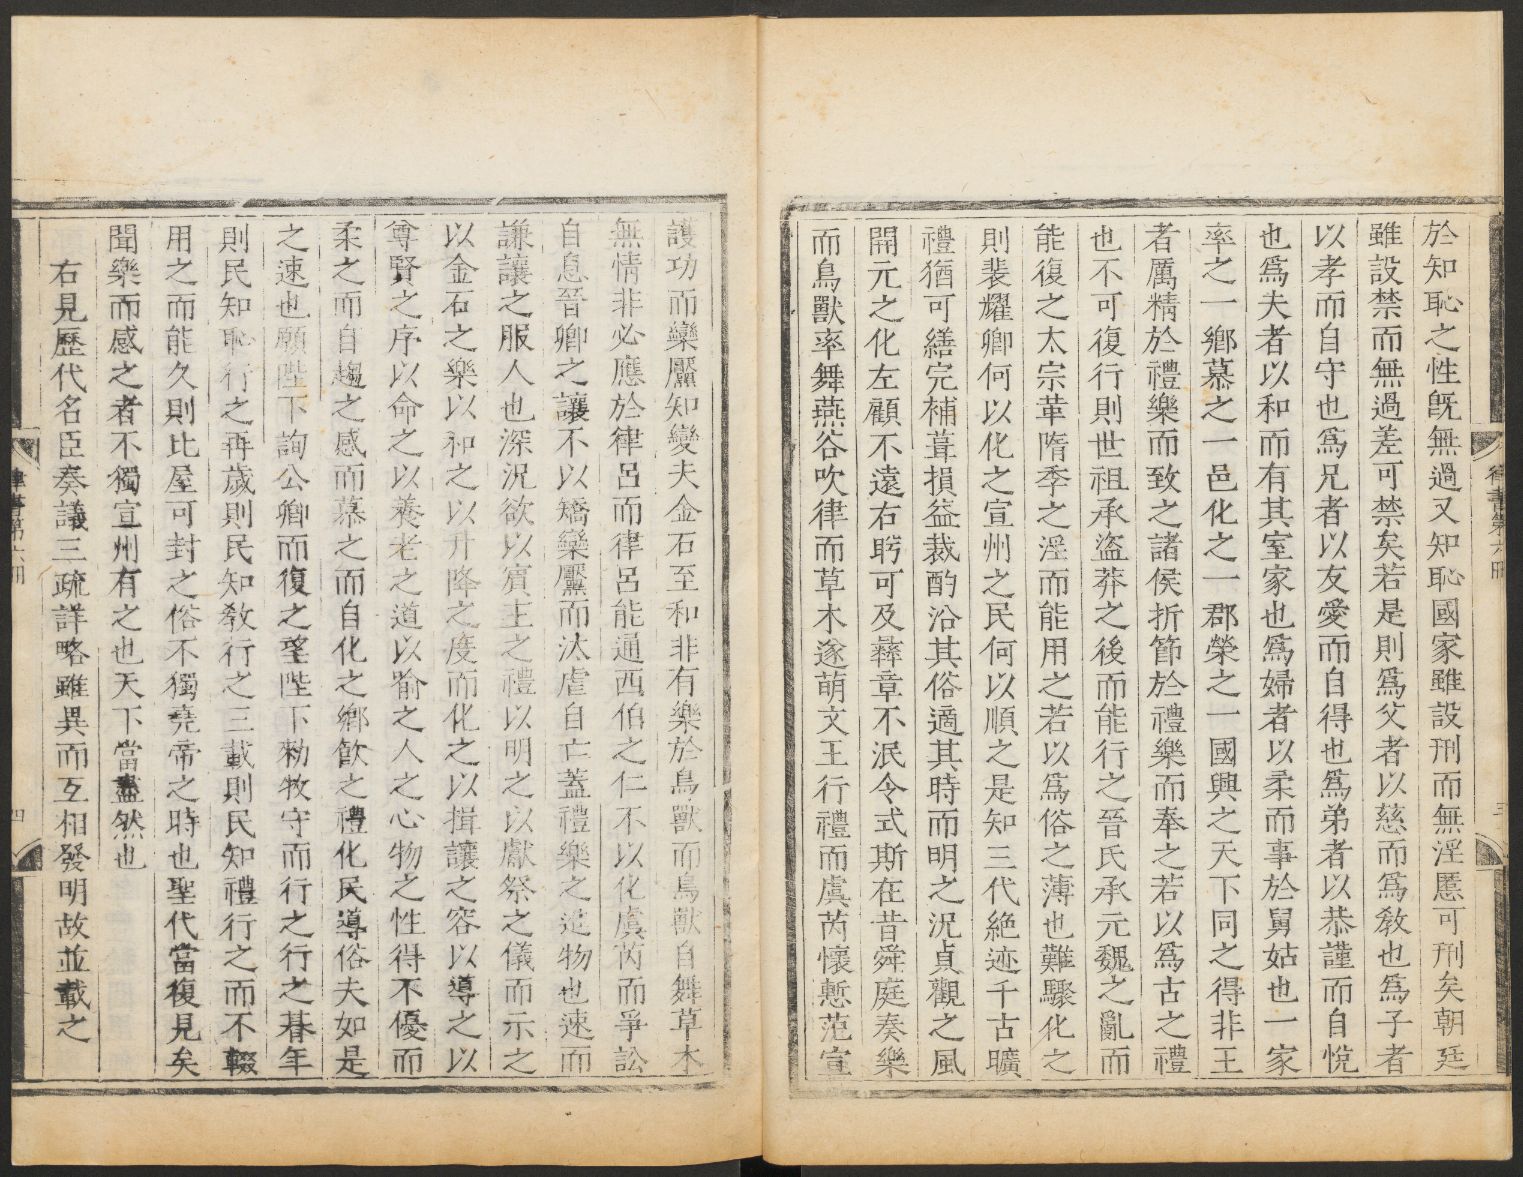 於知恥之性旣無過又知恥國家雖設刑而無淫慝可刑矣朝廷
雖設禁而無過差可禁矣若是則爲父者以慈而爲敎也爲子者
以孝而自守也爲兄者以友愛而自得也爲弟者以恭謹而自悅
也爲夫者以和而有其室家也爲婦者以柔而事於舅姑也一家
率之一鄉慕之一邑化之一郡榮之一國興之天下同之得非王
者厲精於禮樂而致之諸侯折節於禮樂而奉之若以爲古之禮
也不可復行則世祖承盜莽之後而能行之晉氏承元魏之亂而
能復之太宗革隋季之淫而能用之若以爲俗之薄也難驟化之
則裴耀卿何以化之宣州之民何以順之是知三代絶迹千古曠
禮猶可繕完補葺損益裁酌沿其俗適其時而明之況貞觀之風
開元之化左顧不遠右眄可及彝章不泯令式斯在昔舜庭奏樂
而鳥獸率舞燕谷吹律而草木遂萌文王行禮而虞芮懷慙范宣
護功而欒黶知變夫金石至和非有樂於鳥獸而鳥獸自舞草木
無情非必應於律呂而律呂能通西伯之仁不以化虞芮而爭訟
自息晉卿之讓不以矯欒黶而汰虐自亡蓋禮樂之逆物也速而
謙讓之服人也深況欲以賓主之禮以明之以獻祭之儀而示之
以金石之樂以和之以升降之度而化之以揖讓之容以導之以
尊賢之序以命之以養老之道以喻之人之心物之性得不優而
柔之而自趨之感而慕之而自化之鄉飮之禮化民導俗夫如是
之速也願陛下詢公卿而復之望陛下勑牧守而行之行之朞年
則民知恥行之再歲則民知敎行之三載則民知禮行之而不輟
用之而能久則比屋可封之俗不獨堯帝之時也聖代當複見矣
聞樂而感之者不獨宣州有之也天下當盡然也
右見歷代名臣奏議三疏詳略雖異而互相發明故並載之
律書第六冊
三
律書第六冊
四